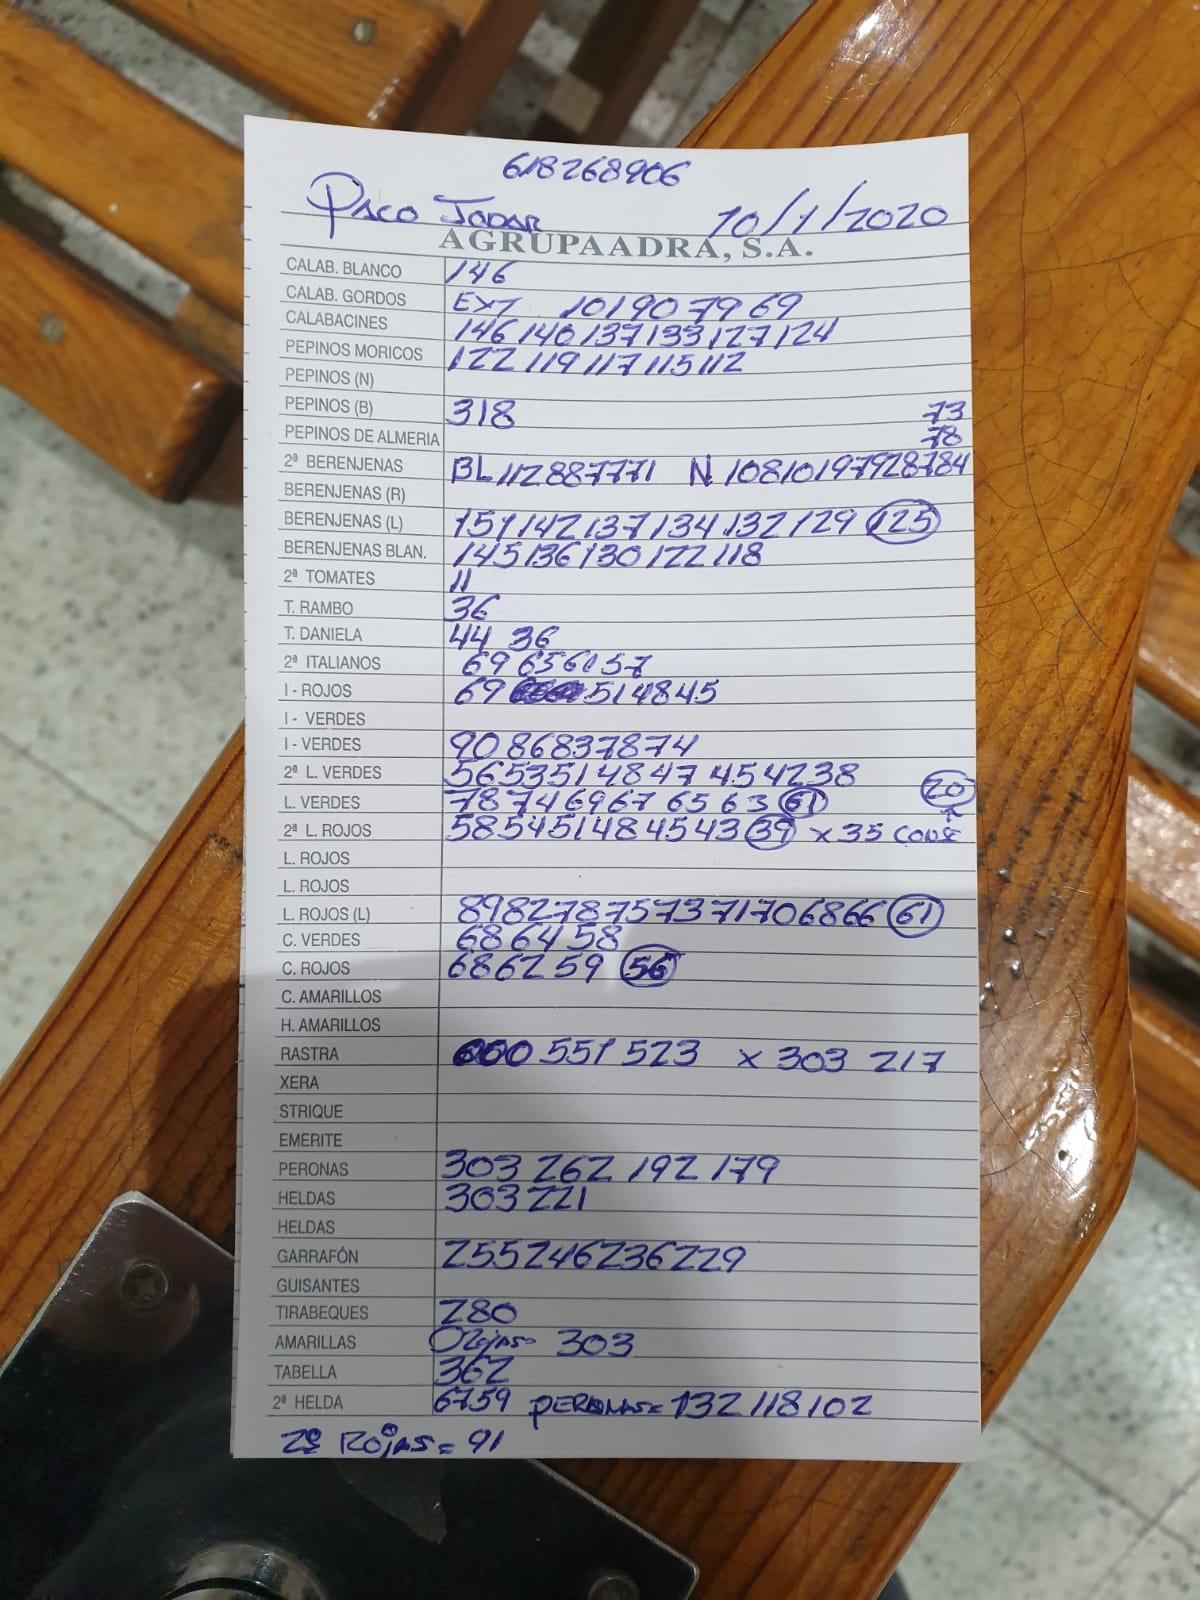 618268906
PACO JODAR 10/1/2020
AGRUPAADRA, S.A.
CALAB. BLANCO 146
CALAB. GORDOS EXT 101 90 79 69
CALABACINES 146 140 137 133 127 124
PEPINOS MORICOS 122 119 117 115 112
PEPINOS (N)
PEPINOS (B) 318 73
PEPINOS DE ALMERIA 78
2ª BERENJENAS BL 112 88 77 71 N 108 101 97 92 87 84
BERENJENAS (R)
BERENJENAS (L) 151 142 137 134 132 129 125
BERENJENAS BLAN. 145 136 130 122 118
2ª TOMATES 11
T. RAMBO 36
T. DANIELA 44 36
2ª ITALIANOS 69 65 61 57
I - ROJOS 69 51 48 45
I - VERDES
I - VERDES 90 86 83 78 74
2ª L. VERDES 56 53 51 48 47 45 42 38 20
L. VERDES 78 74 69 67 65 63 61
2ª L. ROJOS 58 54 51 48 45 43 39 x 35 CONSE
L. ROJOS
L. ROJOS
L. ROJOS (L) 89 82 78 75 73 71 70 68 66 61
C. VERDES 68 64 58
C. ROJOS 68 62 59 56
C. AMARILLOS
H. AMARILLOS
RASTRA 551 523 x 303 217
XERA
STRIQUE
EMERITE
PERONAS 303 262 192 179
HELDAS 303 221
HELDAS
GARRAFÓN 255 246 236 229
GUISANTES
TIRABEQUES 280
AMARILLAS 303
TABELLA 362
2ª HELDA 67 59 PERONAS= 132 118 102
2ª ROJAS= 91